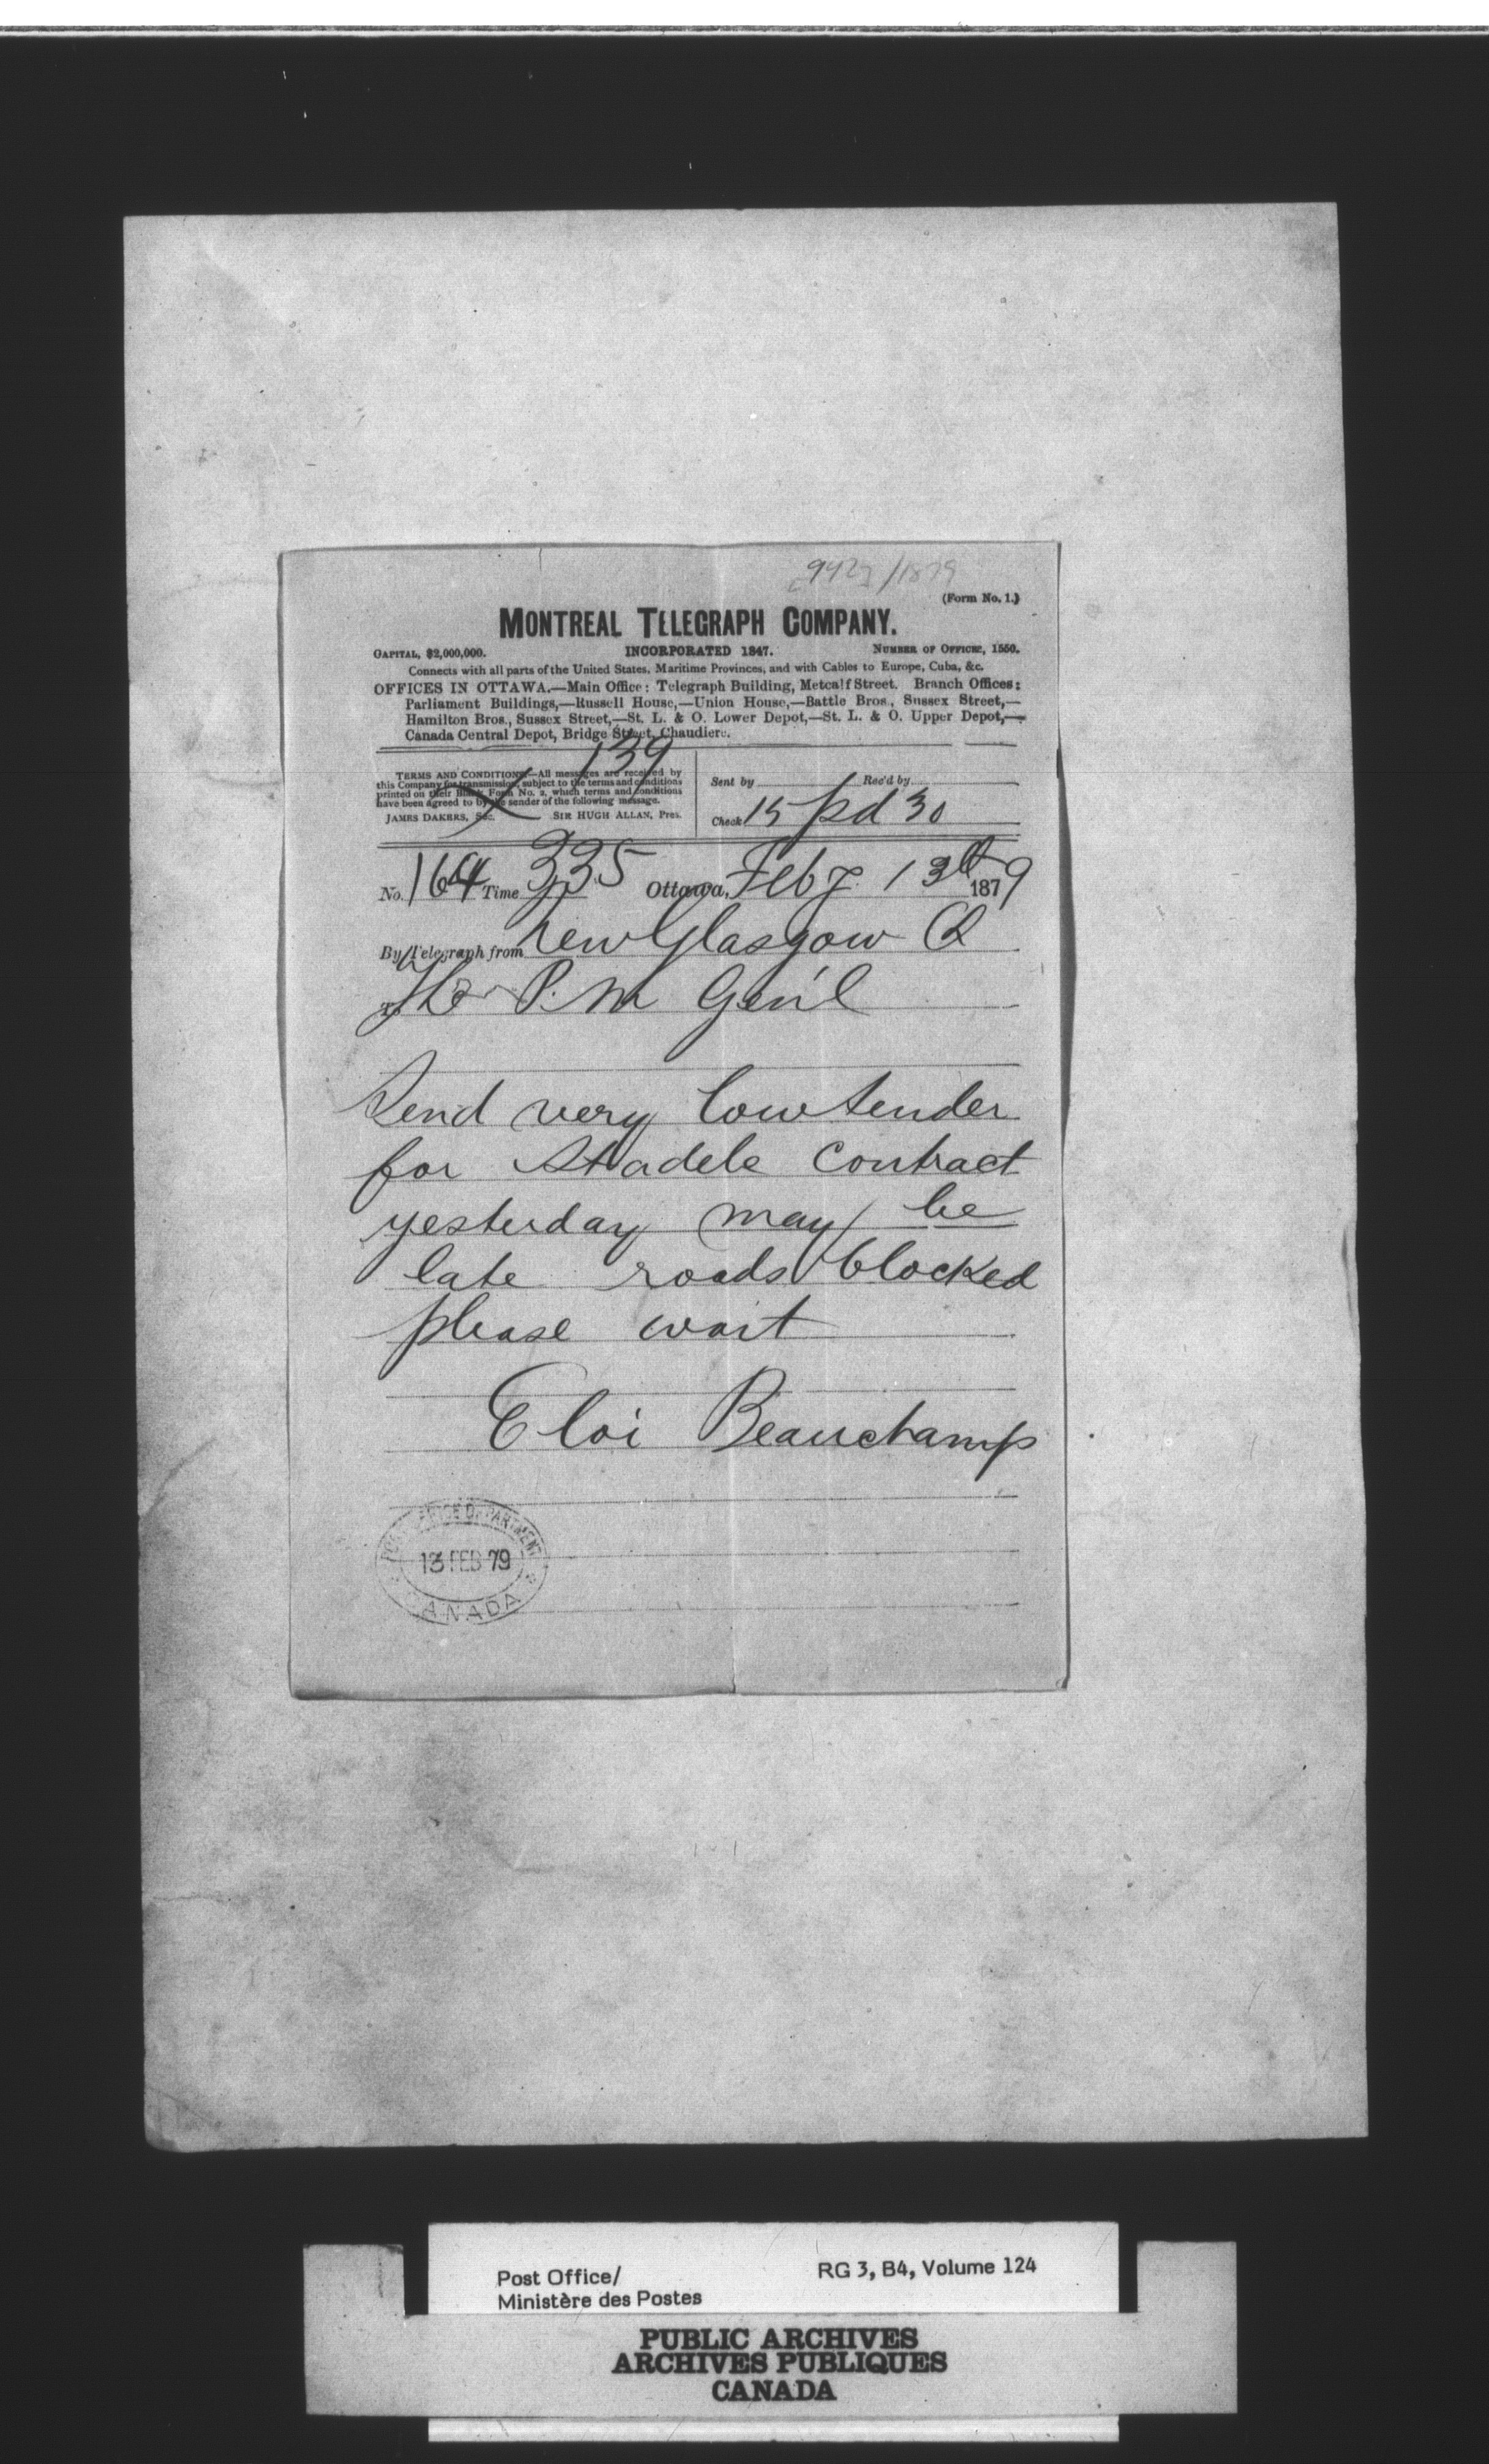 9427/1879
(Form No. 1.)
MONTREAL TELEGRAPH COMPANY.
CAPITAL, $2,000,000. INCORPORATED 1847. NUMBER OF OFFICES, 1550.
Connects with all parts of the United States, Maritime Provinces, and with Cables to Europe, Cuba, &c.
OFFICES IN OTTAWA.—Main Office: Telegraph Building, Metcalf Street. Branch Offices:
Parliament Buildings,—Russell House,—Union House,—Battle Bros., Sussex Street,—
Hamilton Bros., Sussex Street,—St. L. & O. Lower Depot,—St. L. & O. Upper Depot,—
Canada Central Depot, Bridge Street, Chaudiere.
139
TERMS AND CONDITIONS—All messages are received by
this Company for transmission, subject to the terms and conditions
printed on their Blank Form No. 2, which terms and conditions
have been agreed to by the sender of the following message.
JAMES DAKERS, Sec. SIR HUGH ALLAN, Pres.
Sent by Rec'd by
Check 15 pd 30
No. 164 Time 335 Ottawa, Feby 13th 1879
By Telegraph from New Glasgow Q
To P.M Gen'l
Send very low tender
for Stadele contract
yesterday may be
late roads blocked
please wait
Eloi Beauchamp
POST OFFICE DEPARTMENT
13 FEB 79
CANADA
Post Office/ RG 3, B4, Volume 124
Ministère des Postes
PUBLIC ARCHIVES
ARCHIVES PUBLIQUES
CANADA